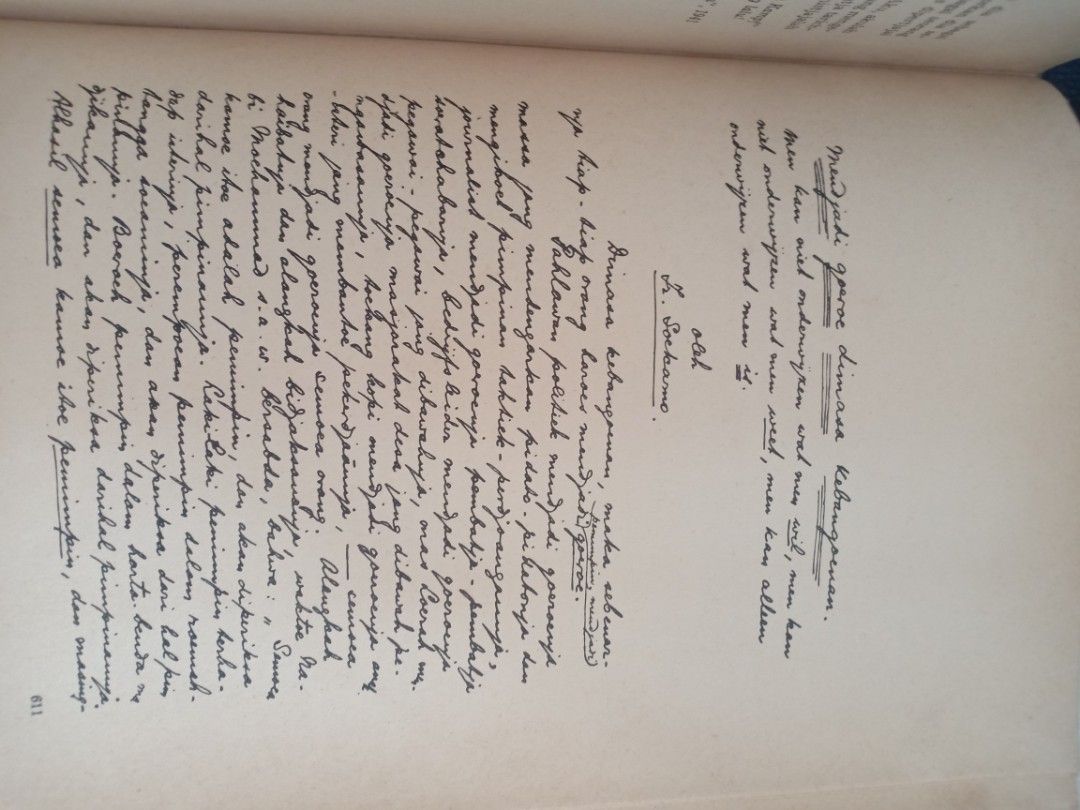 Mendjadi goeroe dimasa kebangoenan.
Men kan niet onderwijzen wat men wil, men kan
niet onderwijzen wat men weet, men kan alleen
onderwijzen wat men is.
oleh
Ir. Soekarno.
Dimasa kebangoenan, maka sebenar-
nja tiap-tiap orang haroes mendjadi pemimpin, mendjadi goeroe.
Pahlawan politiek mendjadi goeroenja
massa jang mendengarkan pidato-pidatonja dan
mengikoet pimpinan taktiek-perdjoangannja,
journalist mendjadi goeroenja pembatja-pembatja
soeratchabarnja, bedrijfsleider mendjadi goeroenja
pegawai-pegawai jang dibawahnja, mas Loerah me-
djadi goeroenja masjarakat desa jang dibawah pe-
ngawasannja, toekang kopi mendjadi goeroenja
jang membantoe pekerdjaännja, — semoea
orang mendjadi goeroenja semoea orang. Alangkah
haibatnja dan alangkah bidjaksananja, waktoe Na-
bi Mochammad s.a.w. bersabda, bahwa: „Semoea
kamoe itoe adalah pemimpin, dan akan diperiksa
darihal pimpinannja. Lelaki pemimpin terha-
dap isterinja, perempoean pemimpin dalam roemah-
tangga soeaminja, dan akan diperiksa dari hal pim
pinannja. Boeroeh pemimpin dalam harta-benda m
djikannja, dan akan diperiksa darihal pimpinannja.
Alhasil semoea kamoe itoe pemimpin, dan masing-
611